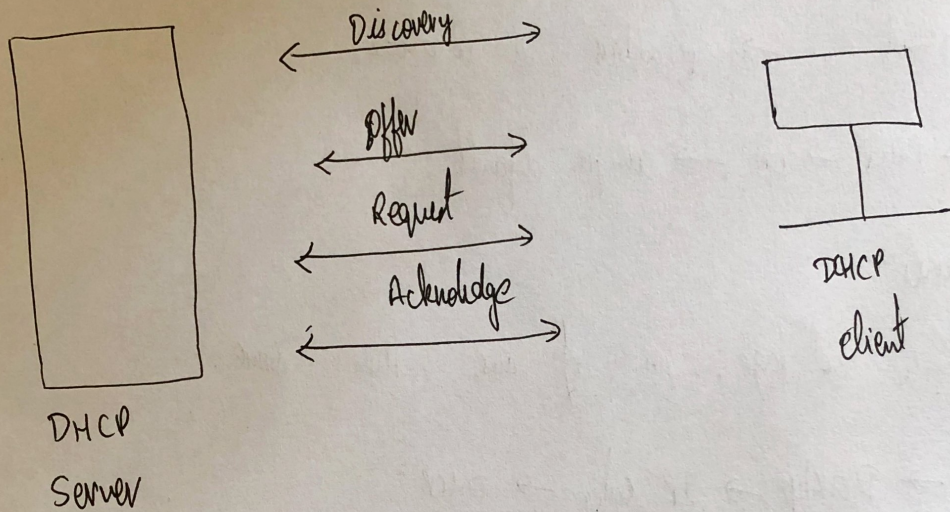 Discovery
Offer
Request
Acknowledge
DHCP
Server
DHCP
client